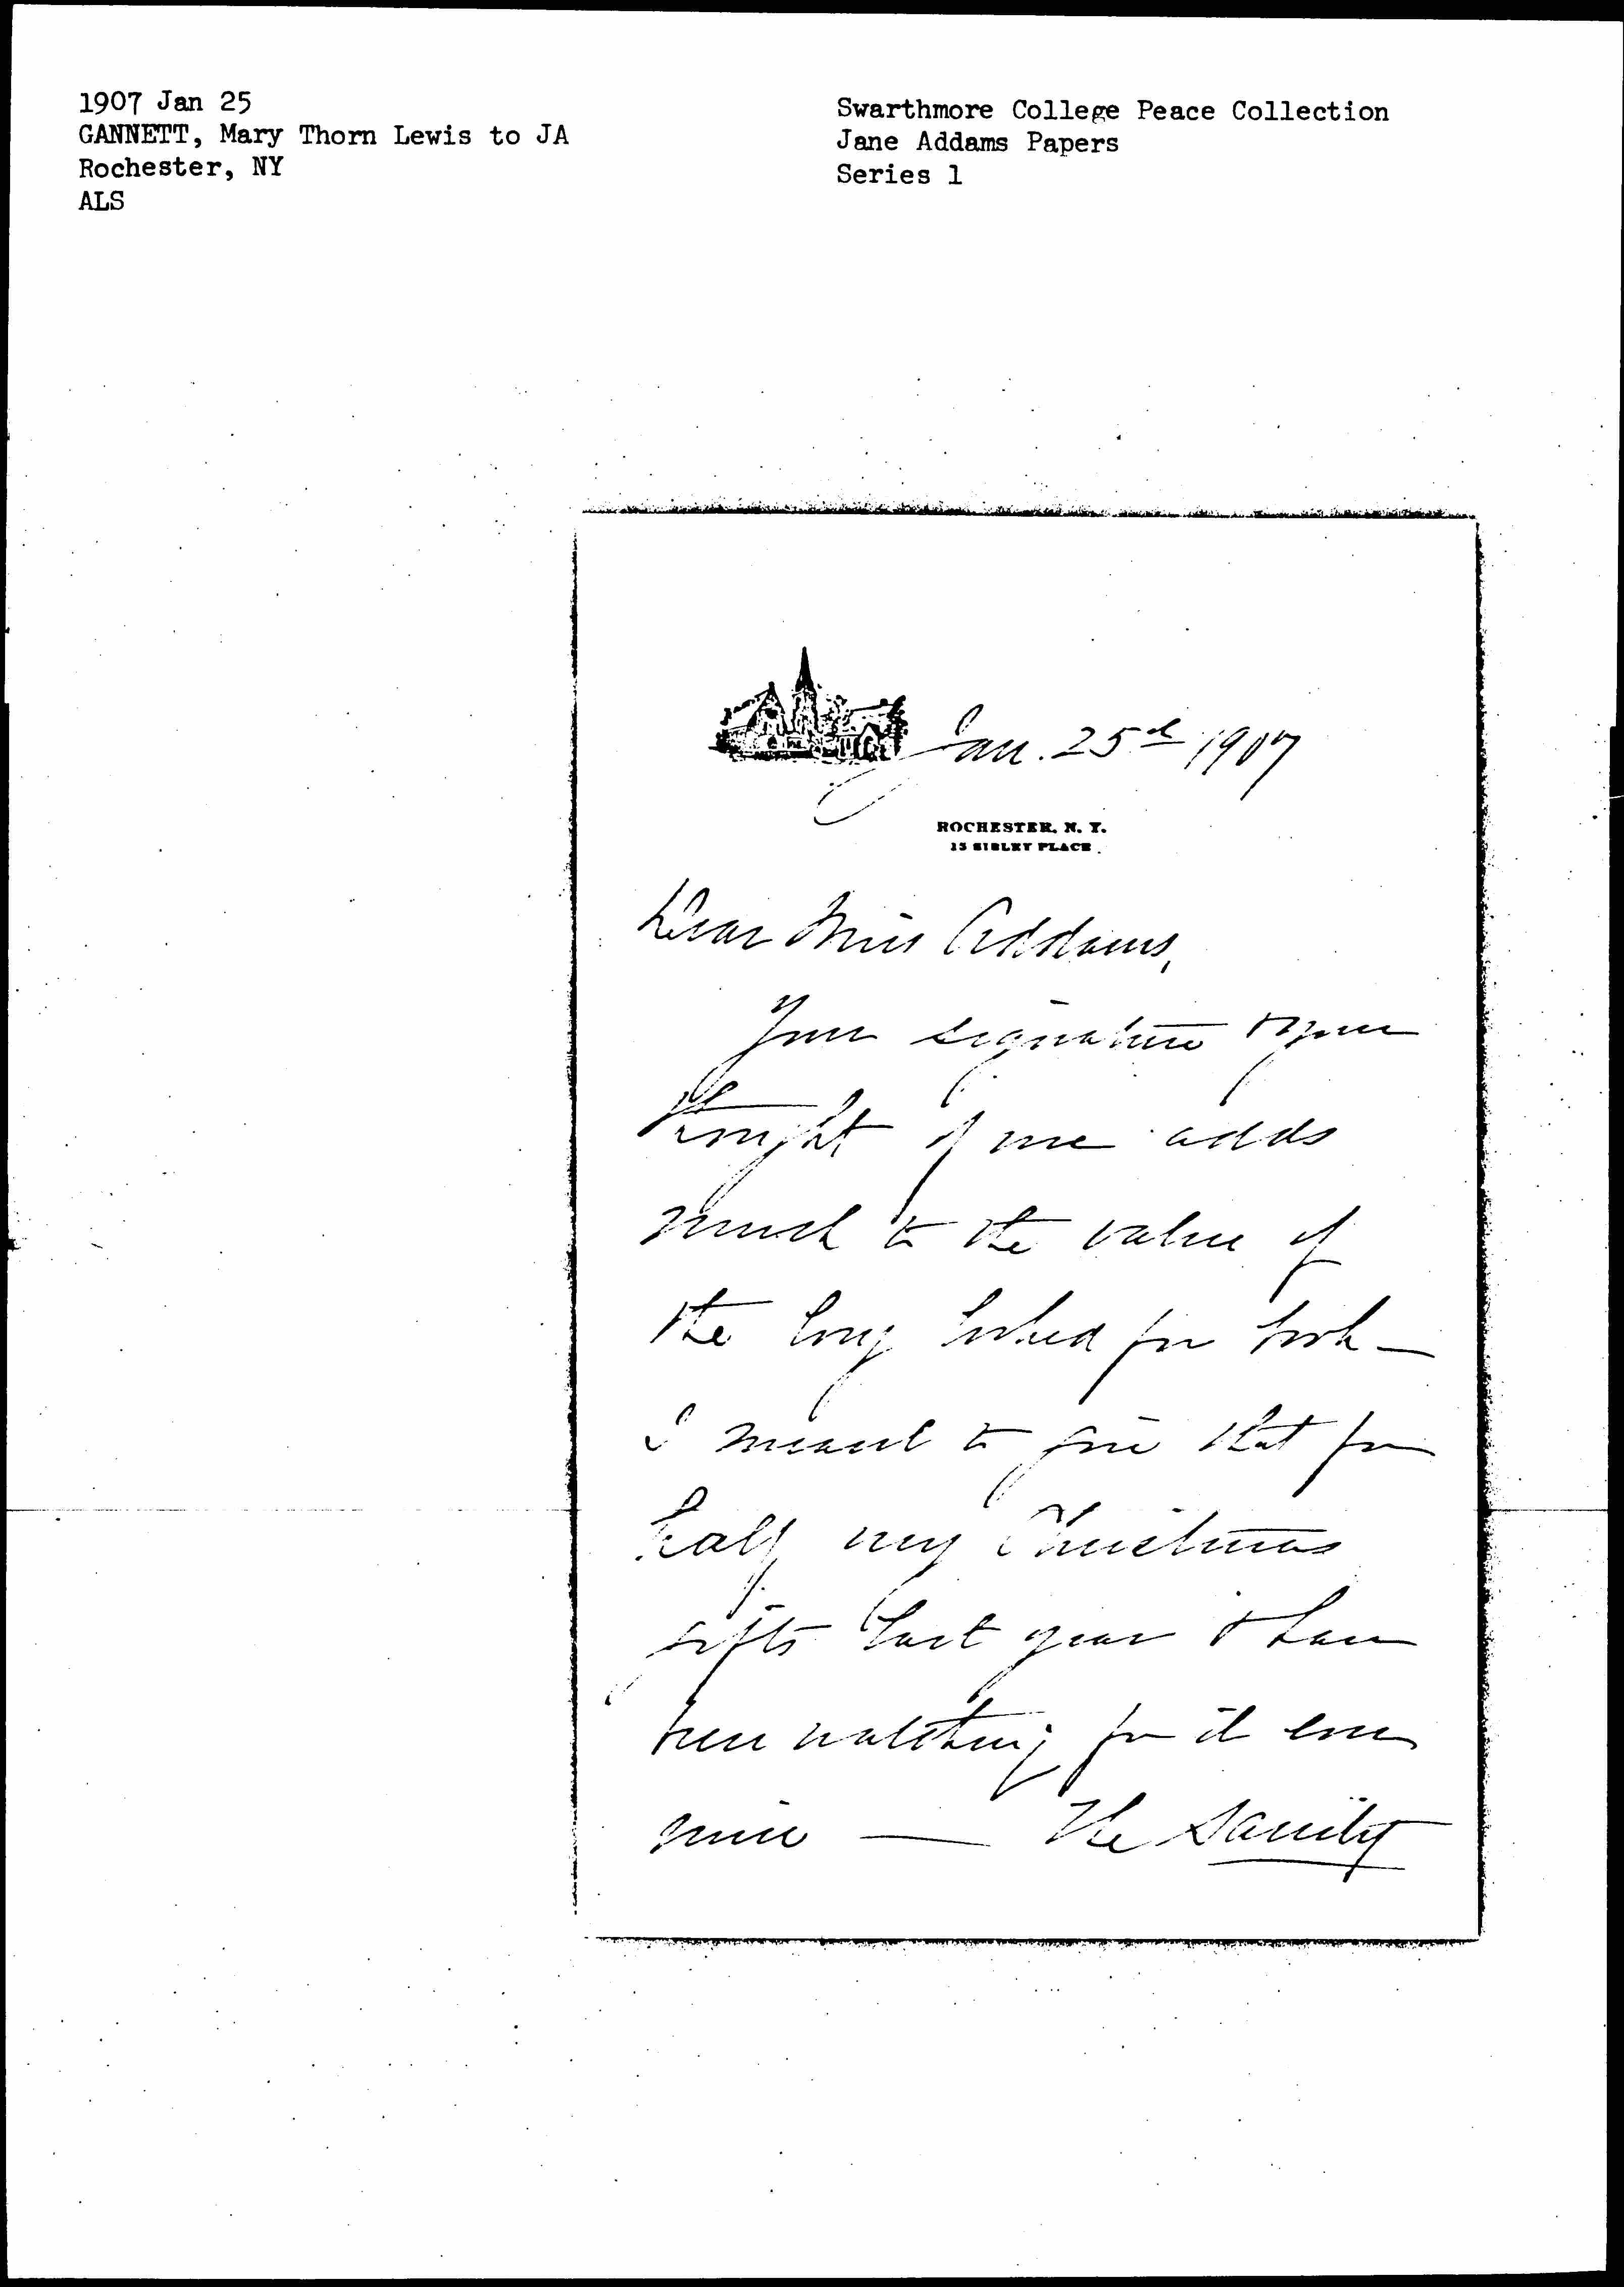 1907 Jan 25
GANNETT, Mary Thorn Lewis to JA
Rochester, NY
ALS
Swarthmore College Peace Collection
Jane Addams Papers
Series 1
Jan. 25th 1907
ROCHESTER, N. Y.
15 SIBLEY PLACE
Dear Miss Addams,
Your signature & your
thought of me adds
much to the value of
the long looked for book —
I meant to give that for
half my Christmas
gifts last year & have
been watching for it ever
since — The Sanity